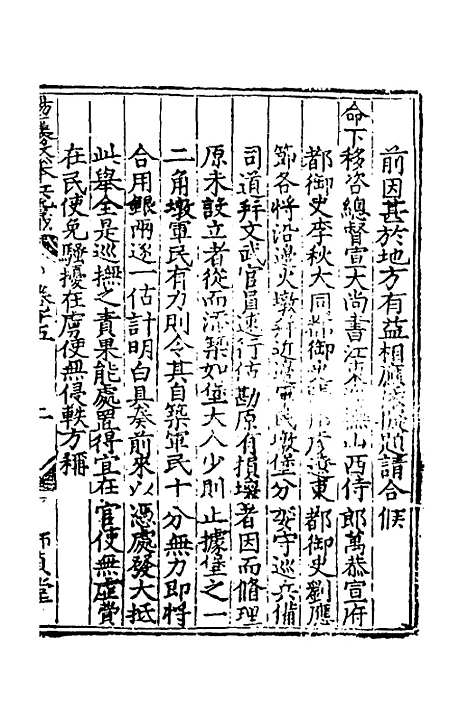 前因甚於地方有益相應請合候
命下移咨總督宣大尚書江東無山西侍郎萬恭宣府
都御史李秋大同都御史遼東都御史劉應
節各將沿邊火墩附近軍民墩堡分守巡兵備
司道并文武官員速行估勘原有損壞者因而脩理
原未設立者從而添築如堡大人少則止據堡之一
二角墩軍民有力則令其自築軍民十分無力即將
合用銀兩逐一估計明白具奏前來以憑處發大抵
此舉全是巡撫之責果能處置得宜在官使無虛費
在民使免騷擾在虜使無侵軼方稱
卷十五